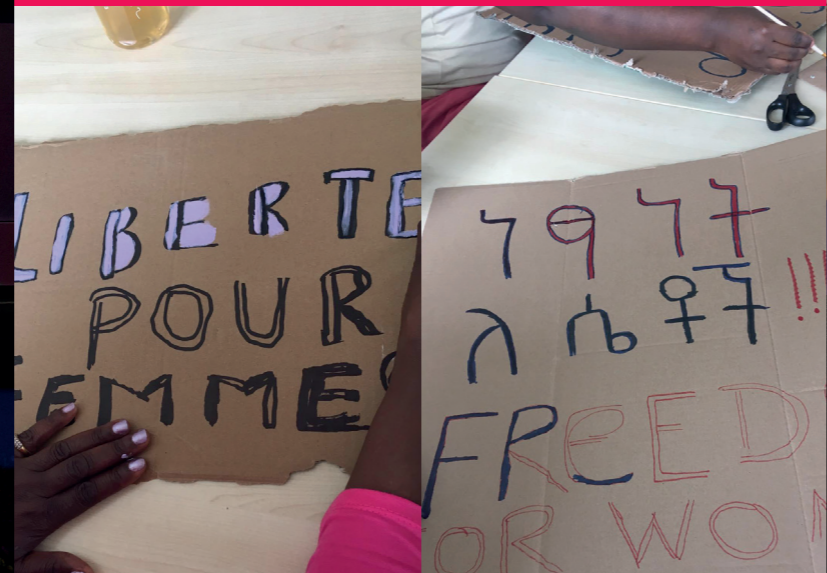 LIBERTE
POUR
FEMMES
ነፃነት
ለሴቶች !!!
FREED
OR WOM